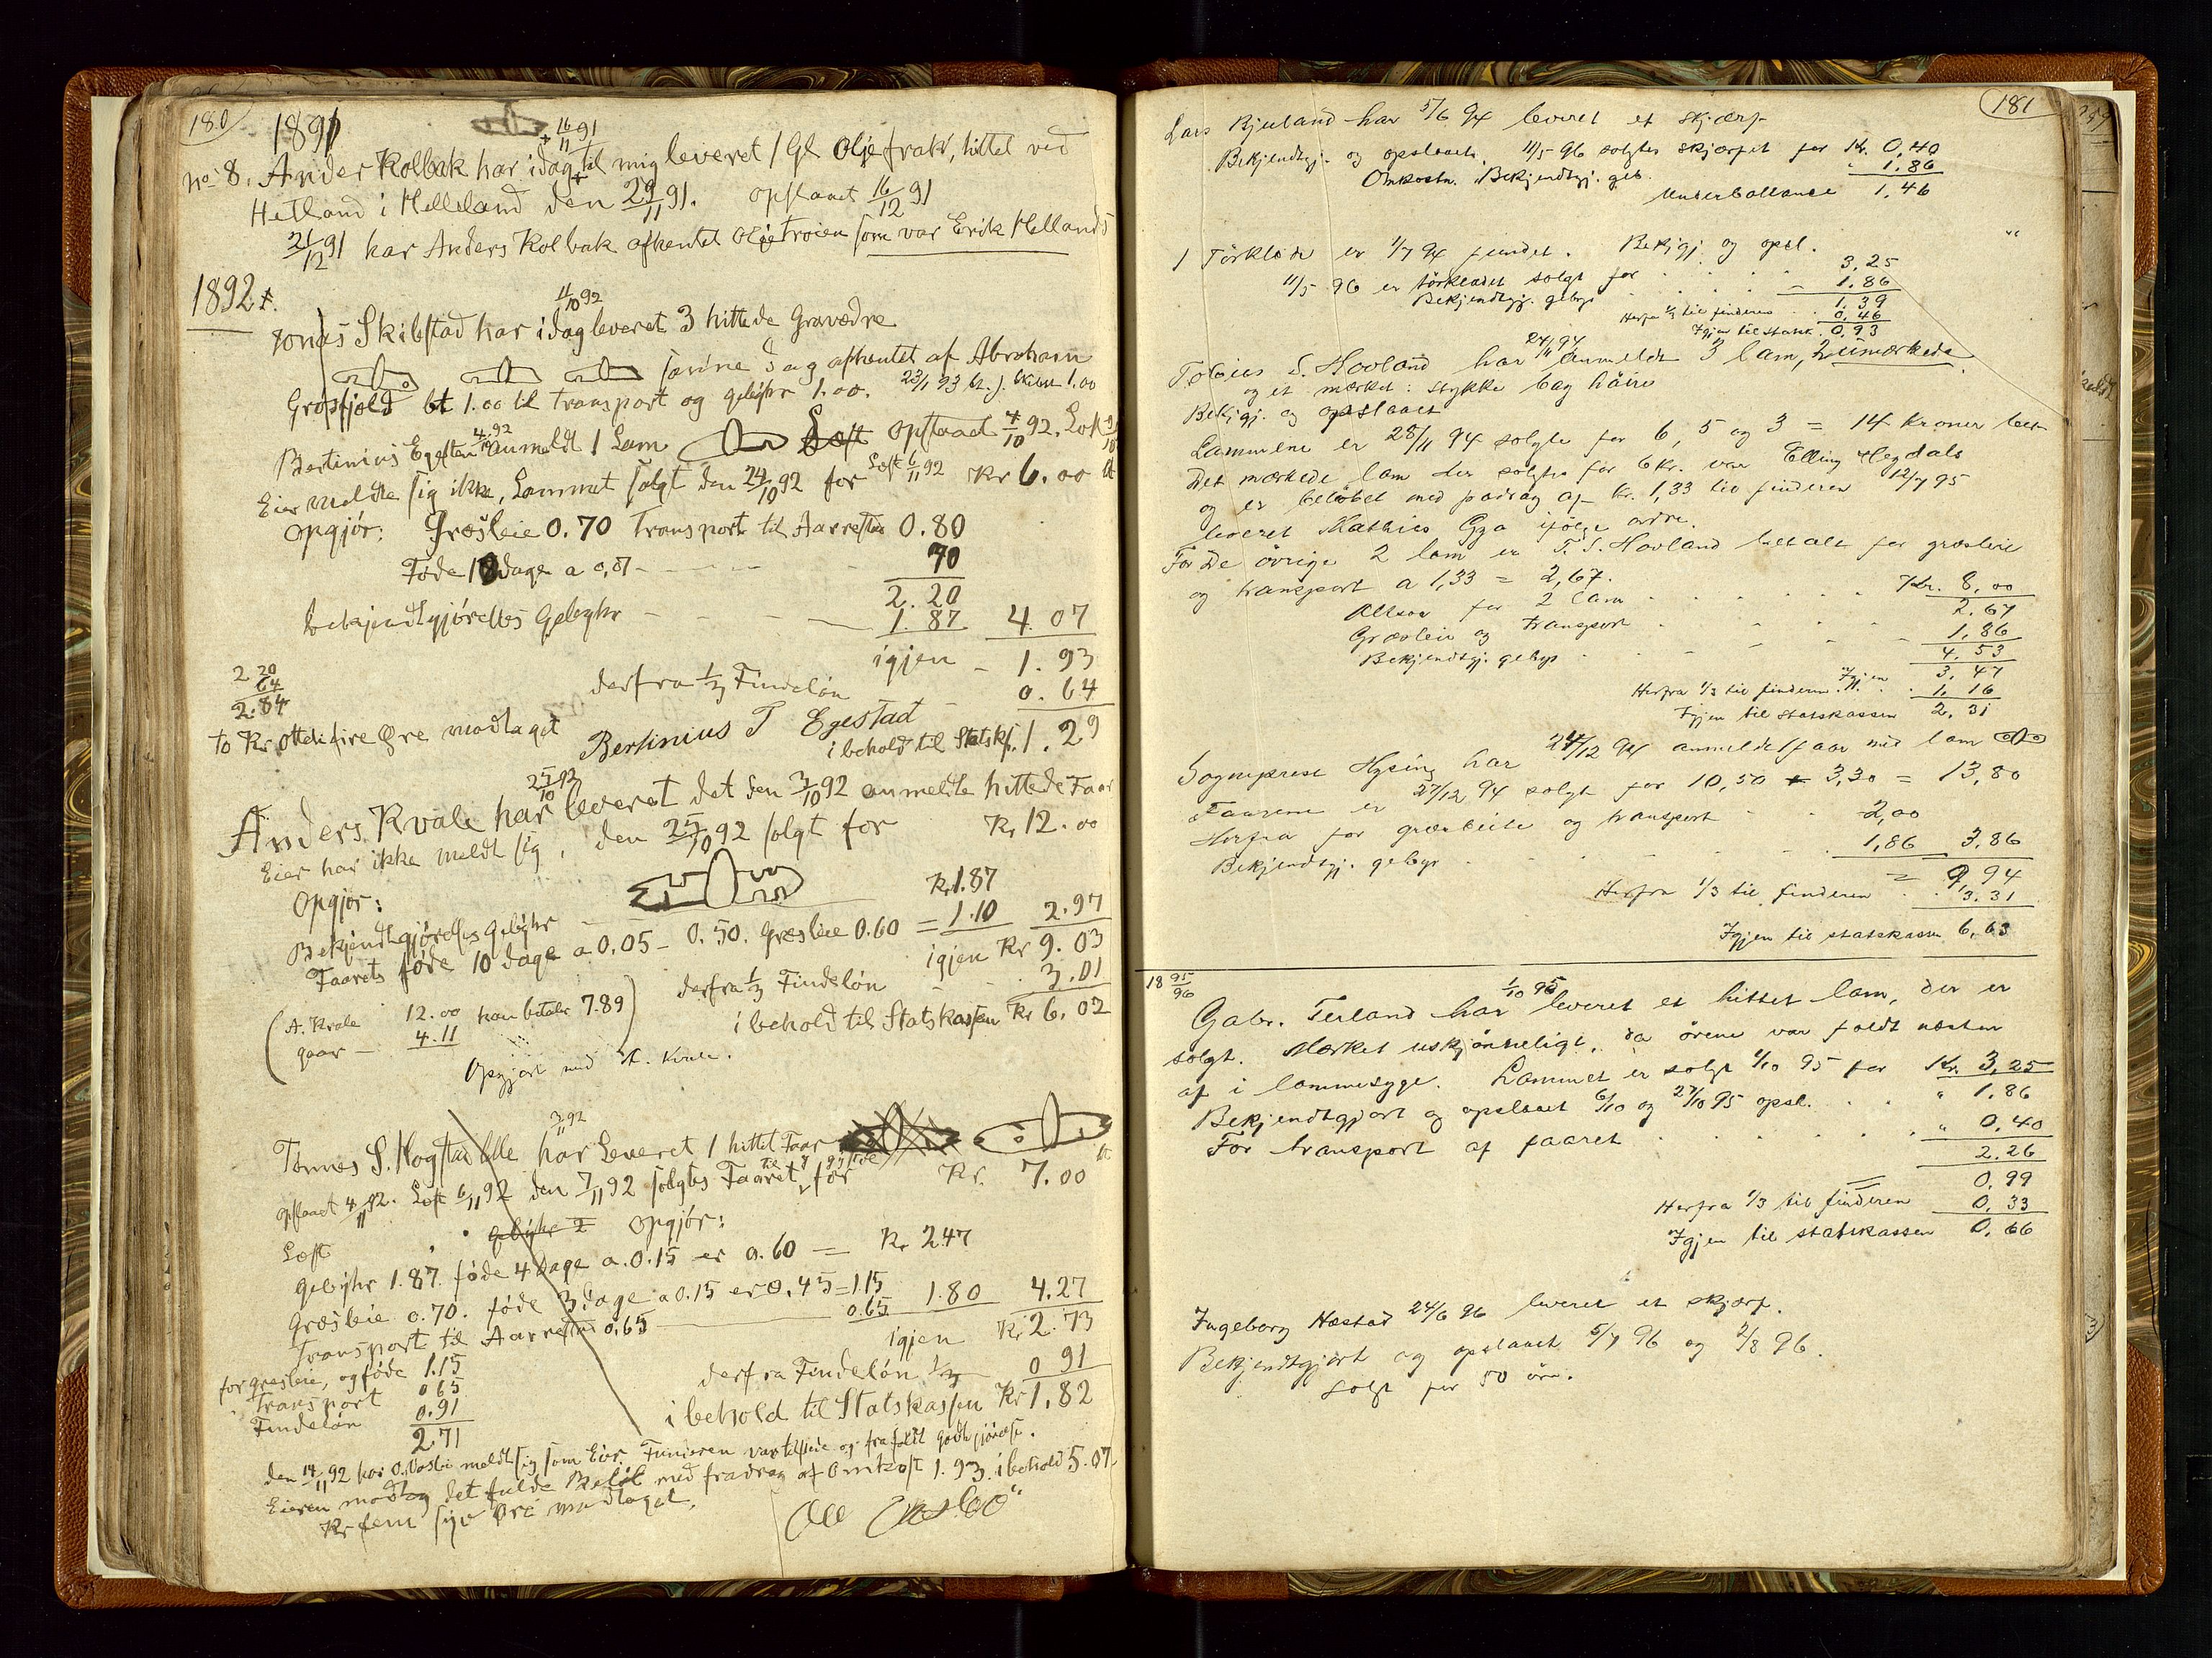 180
1891
16/11 91
No 8. Ander Kolbak har idag til mig leveret 1 Gl Oljefrakk, hittet ved
Hetland i Helleland den 29/11 91. opslaaet 16/12 91
21/12 91 har Anders Kolbak afhentet Oljetroien som var Erik Hellands
1892
11/10 92
Jonas Skibstad har idag leveret 3 hittede Gravædre
samme dag afhentet af Abraham
Grøsfjeld bt 1.00 til transport og gebyhr 1.00. 23/1 93 bt. J. Skibst 1.00
4/10 92
Bertinius Egestad anmeldt 1 Lam Læst Opslaaet 4/10 92. Læst 9/10
Eier meldte sig ikke, Lammet solgt den 24/10 92 for Læst 6/11 92 Kr 6.00
Opgjør: Græsleie 0.70 Transport til Aarrestad 0.80
Føde 10 dage a 0,07 - 70
2.20
bekjendtgjørelses Gebyhr - 1.87 4.07
igjen - 1.93
derfra 1/3 Findeløn 0.64
2.20
64
2.84
to Kr ottifire Øre modtaget Bertinius T Egestad
i behold til Statsk. 1.29
25/10 92
Anders Kvale har leveret det den 3/10 92 anmeldte hittede Faar
Eier har ikke meldt sig, den 25/10 92 solgt for Kr 12.00
Opgjør:
Bekjendtgjørelses Gebyhr Kr 1.87
Faarets føde 10 dage a 0.05 - 0.50. Græsleie 0.60 = 1.10 2.97
igjen Kr 9.03
derfra 1/3 Findeløn 3.01
i behold til Statskassen Kr 6.02
(A. Kvale 12.00 han betaler 7.89)
gaar - 4.11
Opgjort med A. Kvale.
3/11 92
Tønnes S. Hogstad Lille har Leveret 1 hittet Faar
opslaaet 4/11 92. Læst 6/11 92 den 7/11 92 solgtes Faaret for Kr. 7.00
Læst gebyhr 2 Opgjør:
Gebyhr 1.87. føde 4 dage a 0.15 er 0.60 = Kr 2.47
Græsleie 0.70. føde 3 dage a 0.15 er 0.45 = 1.15
Transport til Aarrestad 0.65 0.65 1.80 4.27
igjen Kr 2.73
derfra Findeløn 1/3 0 91
i behold til Statskassen Kr 1,82
for græsleie, og føde 1.15
Transport 0 65
Findeløn 0.91
2.71
den 14/11 92 har O. Osebø meldt sig som Eier. Finderen var tilstede og frafaldt godtgjørelse.
Eieren modtog det fulde Beløb med fradrag af Omkost 1.93. i behold 5.07
Kr fem syv Øre modtaget.
181
Lars Bjuland har 5/6 94 leveret et skjærf
Bekjendtgj. og opslaaet. 11/5 96 solgtes skjærfet for Kr. 0,40
Omkostn. Bekjendtgj. geb. " 1,86
Underballance 1,46
1 Törklæde er 1/7 94 fundet. Bekjgj og opsl. "
11/5 96 er törklædet solgt for 3,25
Bekjendtgj. gebyr 1,86
1,39
Herfra 1/3 til finderen 0,46
Igjen til statsk. 0,93
24/11 94
Tobias S. Hovland har anmeldt 3 lam, 2 umærkede
og et mærket: stykke bag höire
Bekjgj. og opslaaet
Lammene er 28/11 94 solgte for 6, 5 og 3 = 14 kroner
Det mærkede lam der solgtes for 6 kr. var Elling Hegdals
og er belöbet med fradrag af kr. 1,33 til finderen 12/7 95
leveret Mathias Gya ifölge ordre.
For de övrige 2 lam er T. S. Hovland betalt for græsleie
og transport a 1,33 = 2,67.
Altsaa for 2 lam Kr. 8,00
Græsleie og transport 2.67
Bekjendtgj. gebyr 1,86
4.53
Igjen 3,47
Herfra 1/3 til finderen 1,16
Igjen til statskassen 2,31
Sogneprest Hysing har 24/12 94 anmeldt faar med lam
Faarene er 27/12 94 solgt for 10,50 + 3,30 = 13,80
Herfra for græsbeite og transport 2,00
Bekjendtgj. gebyr 1,86 3,86
= 9 94
Herfra 1/3 til finderen 3.31
Igjen til statskassen 6,63
18 95/96
1/10 95
Gabr. Terland har leveret et hittet lam, der er
solgt. Mærket uskjönneligt, da örene var faldt næsten
af i lammesyge. Lammet er solgt 1/10 95 for Kr. 3,25
Bekjendtgjort og opslaaet 6/10 og 27/10 95 opsl. " 1,86
For transport af faaret " 0,40
2.26
0,99
Herfra 1/3 til finderen 0,33
Igjen til statskassen 0,66
Ingeborg Hæstad 24/6 96 leveret et skjærf.
Bekjendtgjort og opslaaet 5/7 96 og 2/8 96.
Solgt for 50 öre.